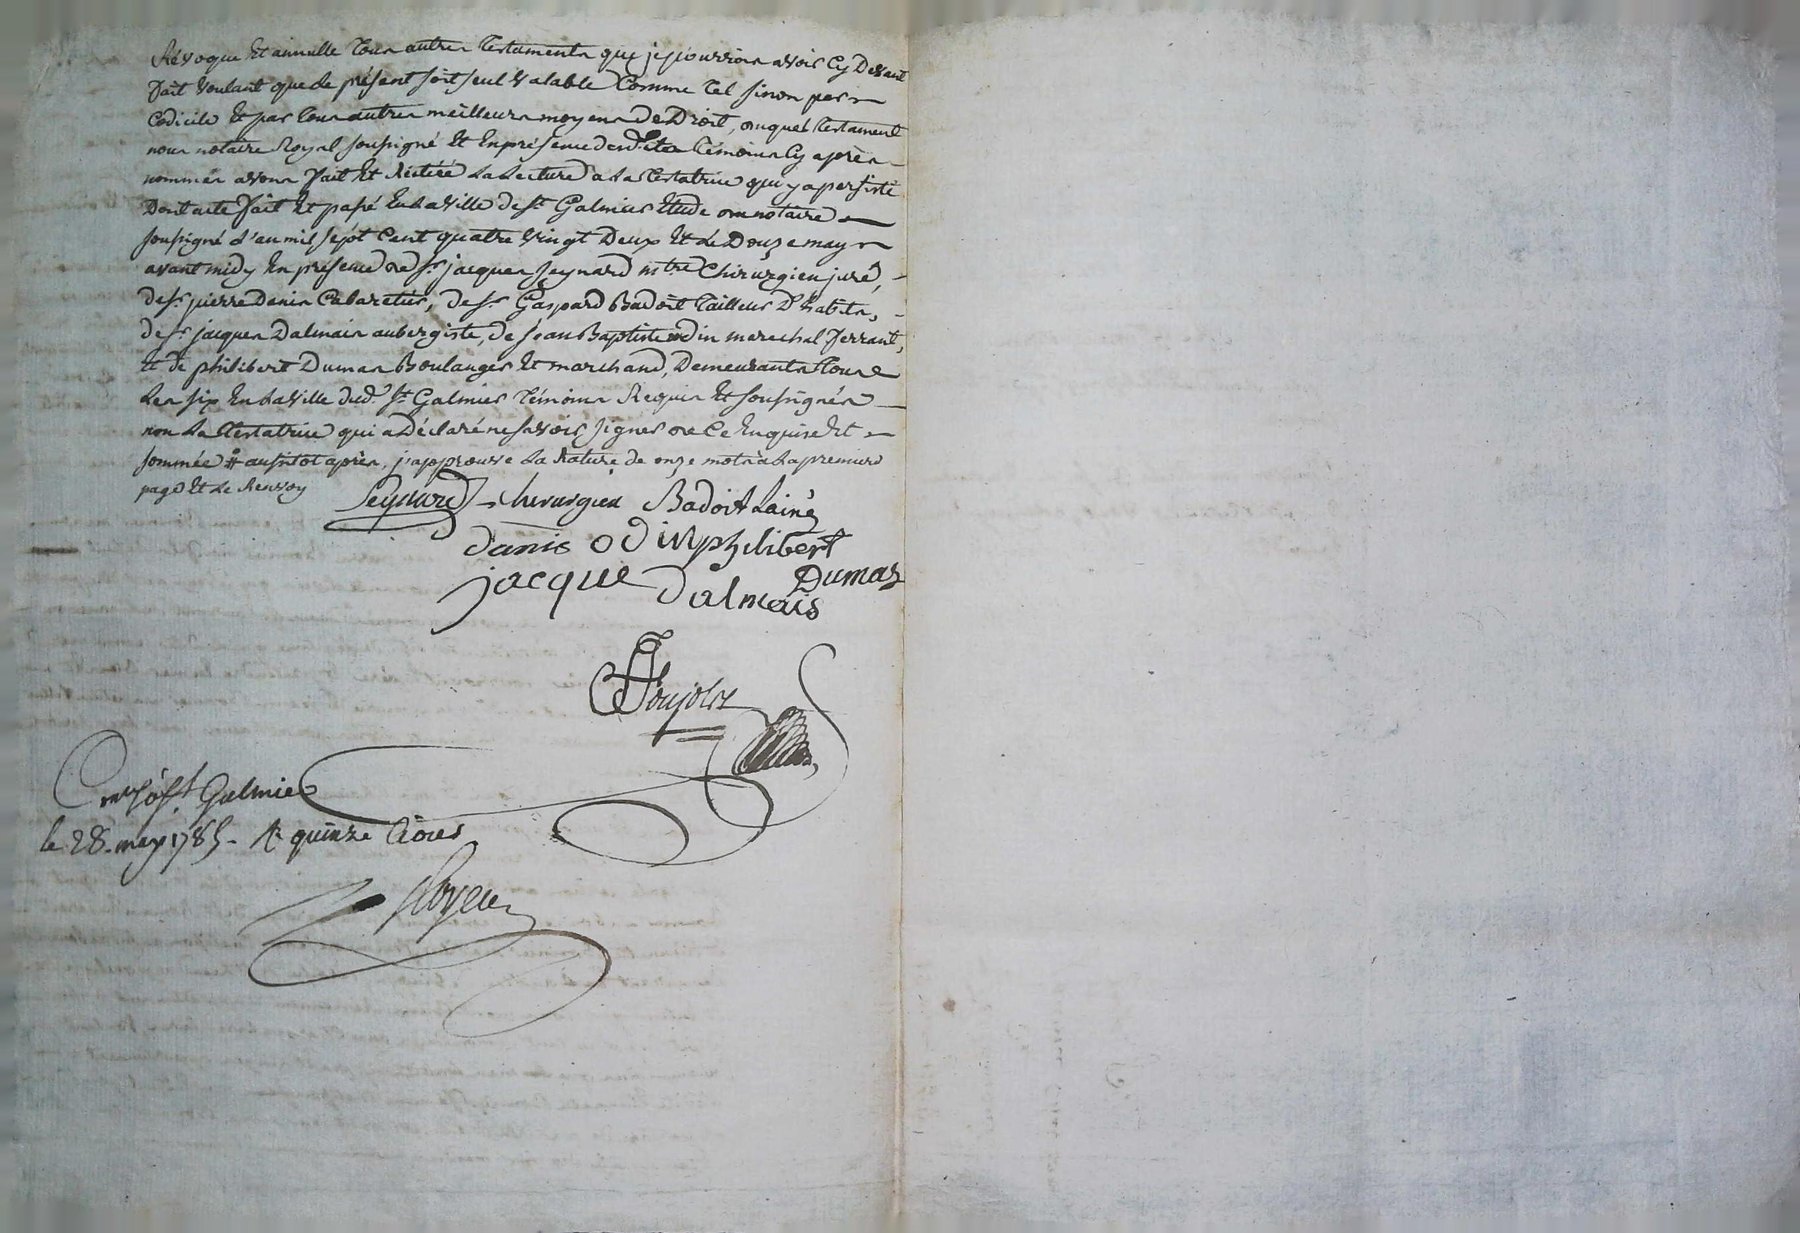 Révoque Et annulle Tous autres Testaments que je pourrois avois Cy Devant
fait voulant que le présent soit seul valable Comme Tel sinon par
Codicile Et par Tous autres meilleurs moyens De Droit, auquel Testament
nous notaire Royal soussigné Et En présence desdits Témoins Cy après
nommés avons fait Et Réitéré La Lecture a La Testatrice qui y a persisté
Dont acte fait Et passé En La Ville de St Galmier Etude du notaire
soussigné L'an mil sept Cent quatre vingt Deux Et Le Douze may
avant midy En présence de Sr jacques Seynard mtre Chirurgien juré,
de Sr pierre Denis Cabaretier, de Sr Gaspard Badoit Tailleur D'habits,
de Sr jacques Dalmais aubergiste, de jean Baptiste odin marechal ferrant,
Et de philibert Dumas Boulanger Et marchand, Demeurants Tous
Les six En La Ville dud. St Galmier Témoins Requis Et soussignés
non La Testatrice qui a Déclaré ne savoir signer de Ce Enquise Et
sommée # aussitot après, j'approuve La Rature de onze mots à La premiere
page Et Le Renvoy
Seynard chirurgien Badoit Lainé
danis odin philibert
jacque Dalmais Dumas
Poujolz
St Galmier
le 28. may 1785. R. quinze